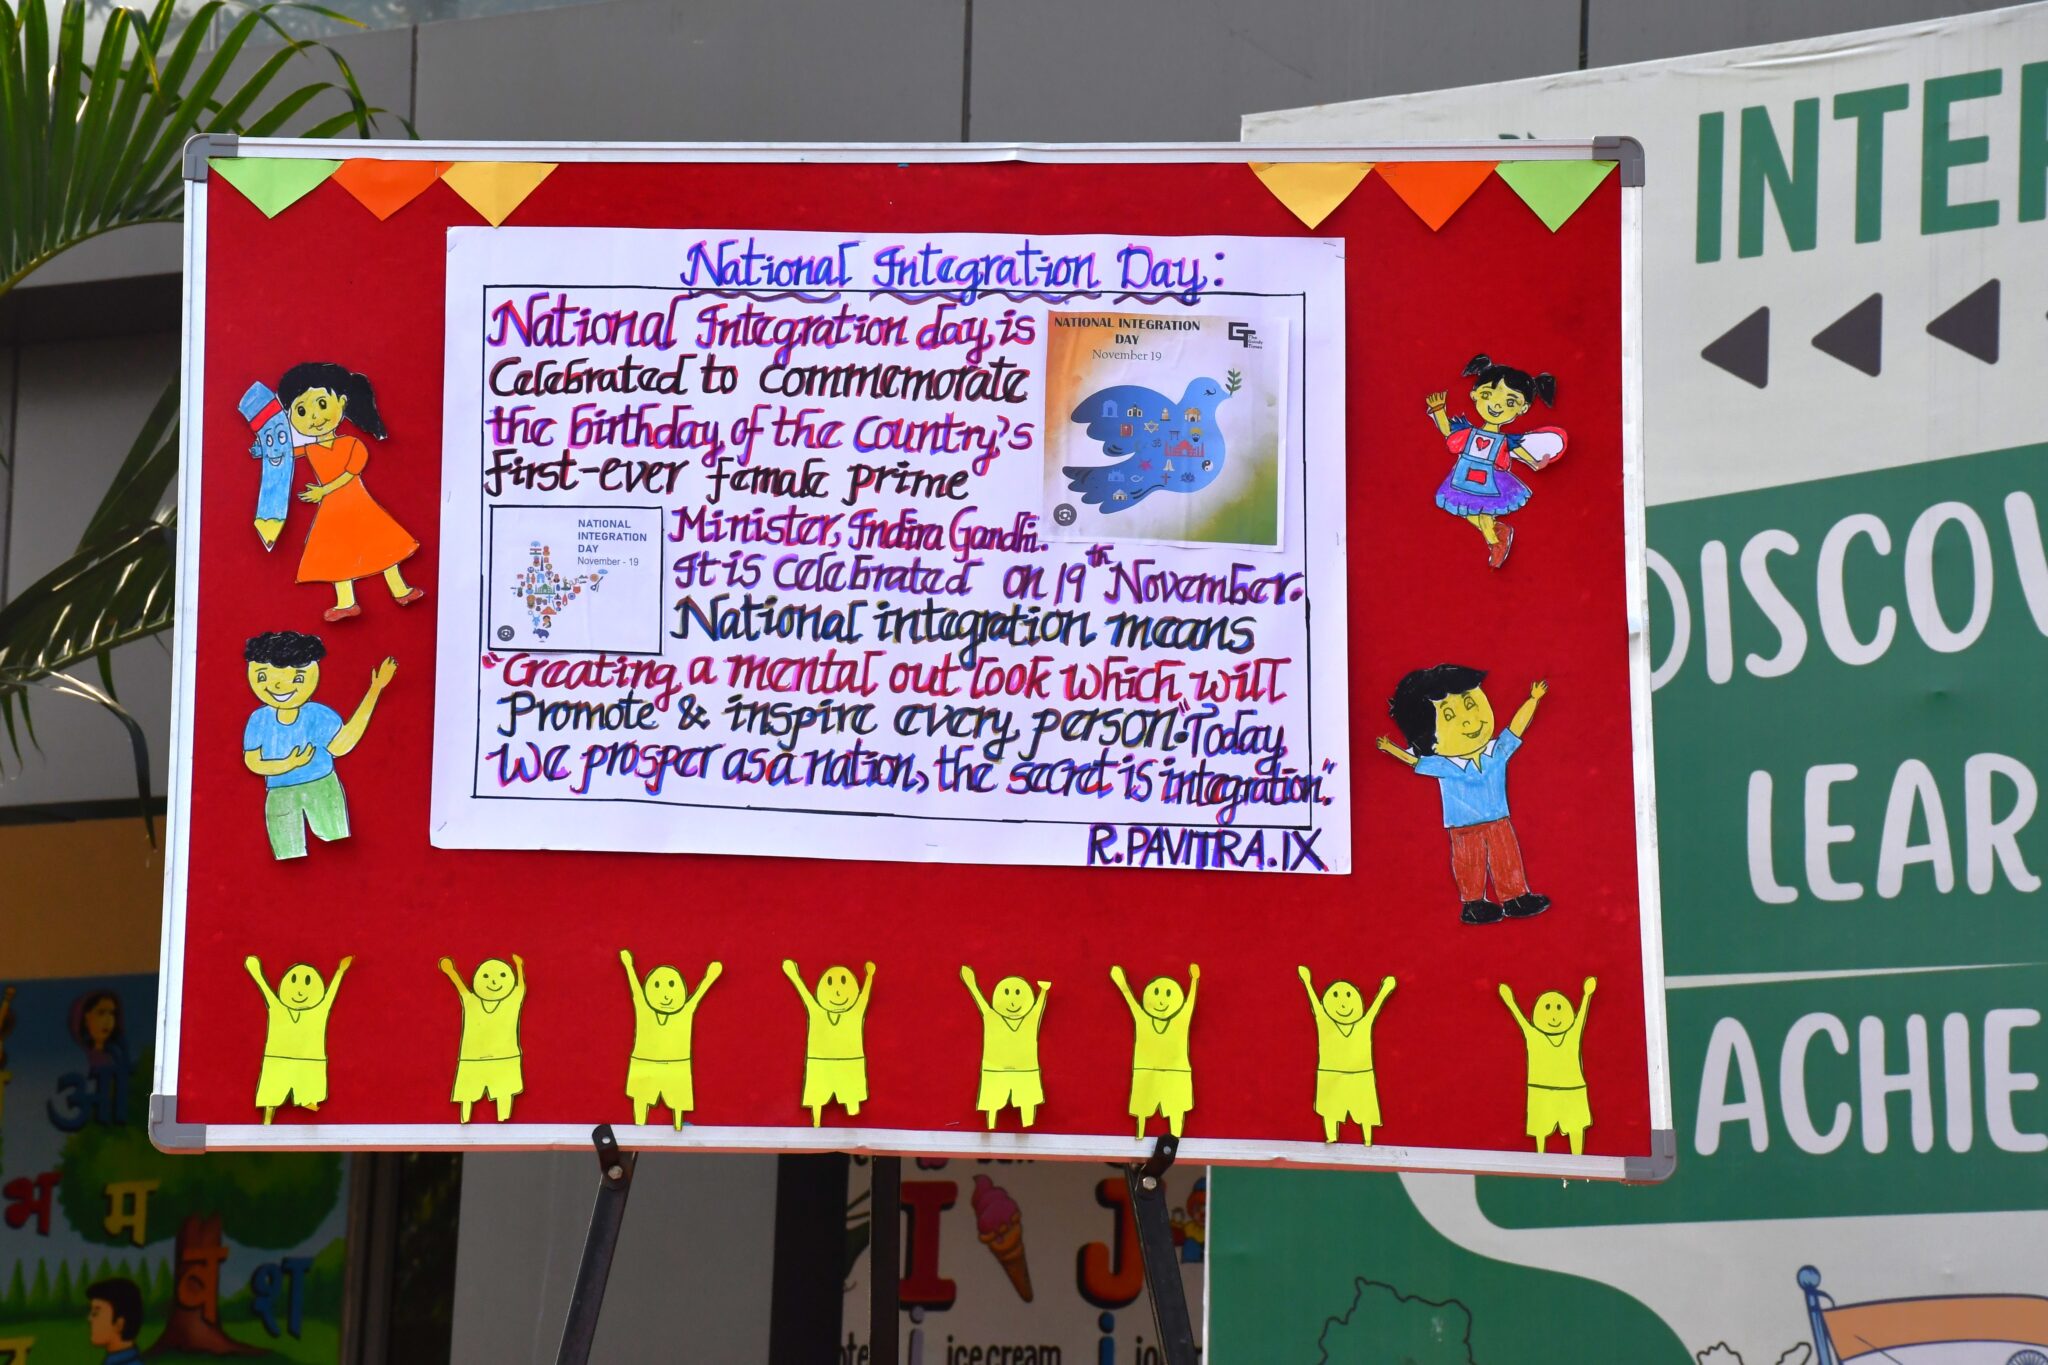 National Integration Day:
National Integration day, is
Celebrated to commemorate
the birthday, of the country's
first-ever female prime
Minister, Indira Gandhi.
It is celebrated on 19th November.
National integration means
"Creating a mental out look which will
Promote & inspire every person." Today
We prosper as a nation, the secret is integration".
R.PAVITRA.IX
NATIONAL INTEGRATION
DAY
November 19
GT The Gaudy Times
NATIONAL
INTEGRATION
DAY
November - 19
INTE
DISCOV
LEAR
ACHIE
ओ
भ म
व श
I J
i j
ice cream